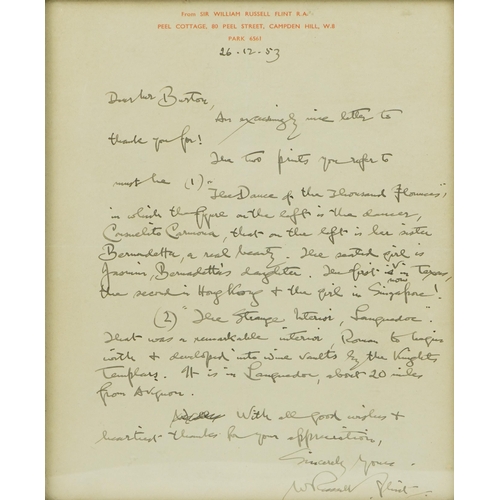 From SIR WILLIAM RUSSELL FLINT R.A.
PEEL COTTAGE, 80 PEEL STREET, CAMPDEN HILL, W.8
PARK 6361
26.12.53
Dear Mr Burton,
An exceedingly nice letter to
thank you for!
The two prints you refer to
must be (1) "
The Dance of the Thousand Flounces",
in which the figure on the left is the dancer,
Consuelito Carmona, that on the left is her sister
Bernadetta, a real beauty. The seated girl is
Jasmin, Bernadetta's daughter. The first is now in Texas,
the second in Hong Kong & the girl in Singapore!
(2) "The Strange Interior, Languedoc".
That was a remarkable interior, Roman to begin
with & developed into wine vaults by the Knights
Templars. It is in Languedoc, about 20 miles
from Avignon.
With all good wishes &
heartiest thanks for your appreciation,
Sincerely Yours.
W Russell Flint.